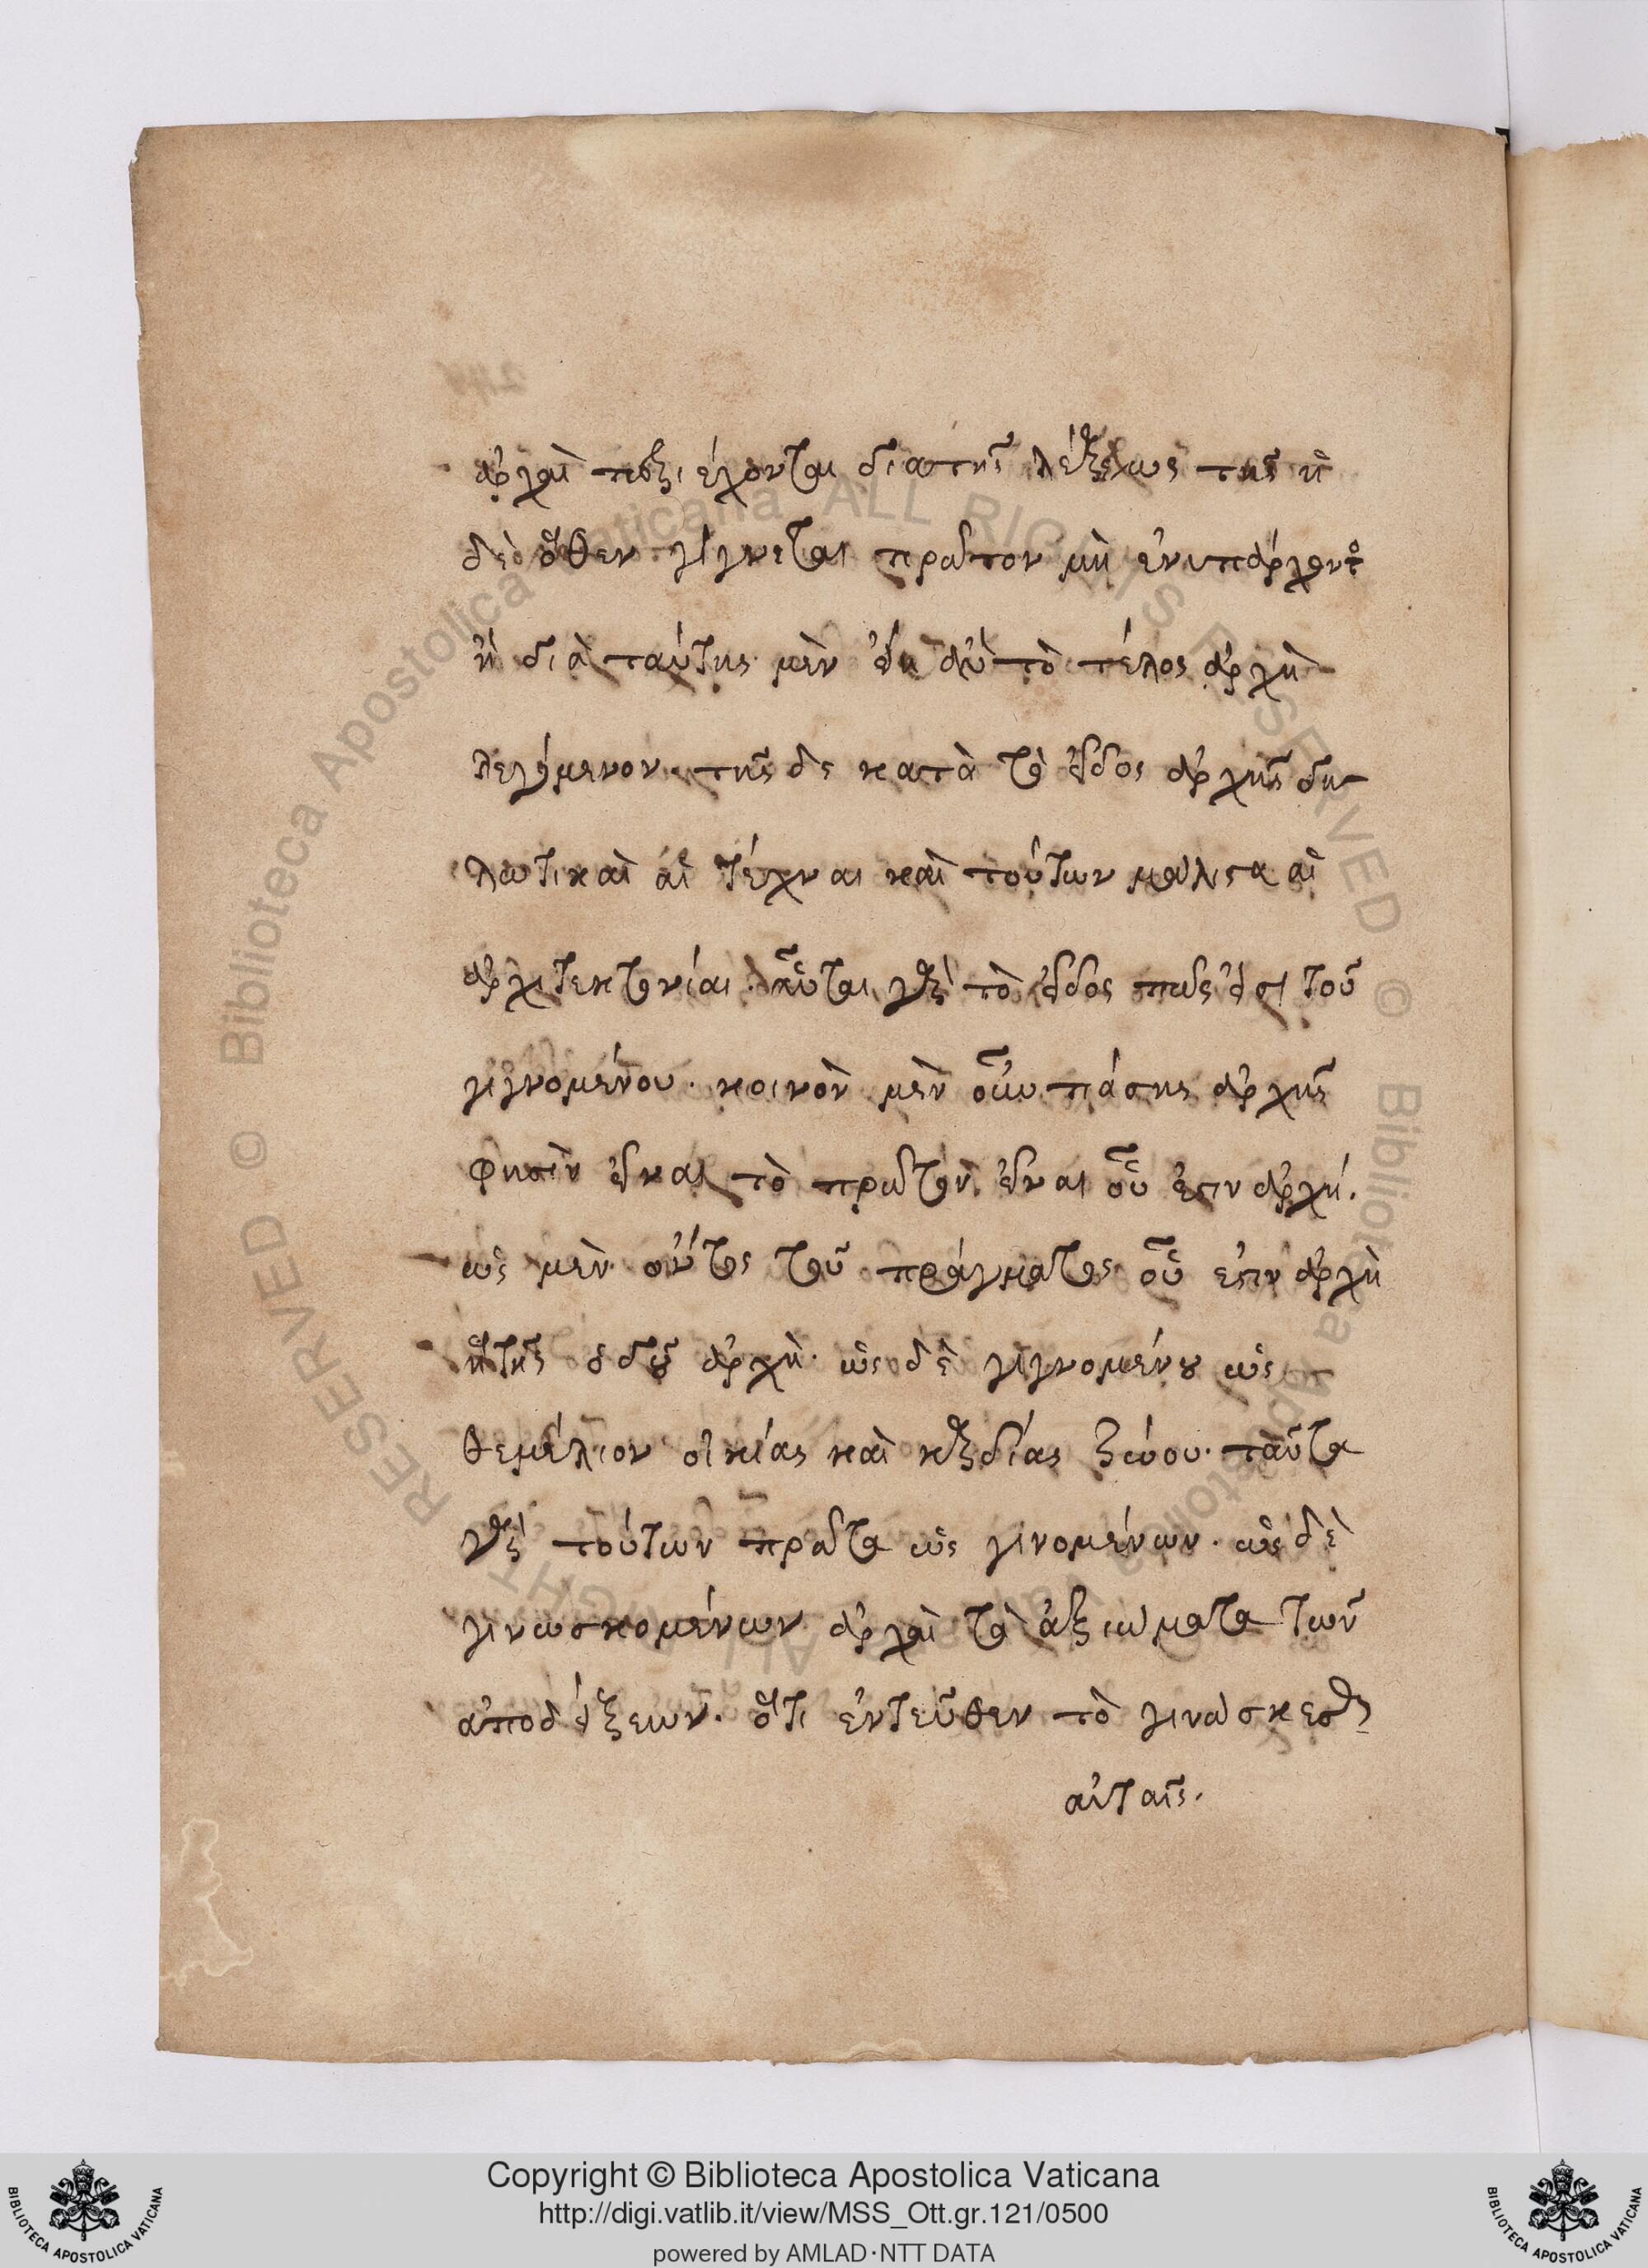 ἀρχαὶ περιέχονται διὰ τῆς λέξεως τῆς ἡ
δὲ ὅθεν γίγνεται πρῶτον μὴ ἐνυπάρχοντος
ἢ διὰ ταύτης μὲν εἴη αὐτὸ τέλος ἀρχὴ
λεγόμενον. τῆς δὲ κατὰ τὸ εἶδος ἀρχῆς δη
λωτικαὶ αἱ τέχναι καὶ τούτων μάλιστα αἱ
ἀρχιτεκτονίαι. αὗται γὰρ τὸ εἶδος πώς εἰσι τοῦ
γιγνομένου. κοινὸν μὲν οὖν πάσης ἀρχῆς
φησὶν εἶναι τὸ πρῶτον εἶναι οὗ ἐστιν ἀρχή.
ὡς μὲν ὄντος τοῦ πράγματος οὗ ἐστιν ἀρχὴ
ἡ τῆς ὁδοῦ ἀρχὴ. ὡς δὲ γιγνομένου ὡς
θεμέλιον οἰκίας καὶ καρδίας ζώου. ταῦτα
γὰρ τούτων πρῶτα ὡς γινομένων. ὡς δὲ
γινωσκομένων ἀρχαὶ τὰ ἀξιώματα τῶν
ἀποδείξεων. ὅτι ἐντεῦθεν τὸ γινώσκεσθαι
αὐταῖς.
Copyright © Biblioteca Apostolica Vaticana
http://digi.vatlib.it/view/MSS_Ott.gr.121/0500
powered by AMLAD·NTT DATA
BIBLIOTECA APOSTOLICA VATICANA
BIBLIOTECA APOSTOLICA VATICANA
Biblioteca Apostolica Vaticana ALL RIGHTS RESERVED ©
Biblioteca Apostolica Vaticana ALL RIGHTS RESERVED ©